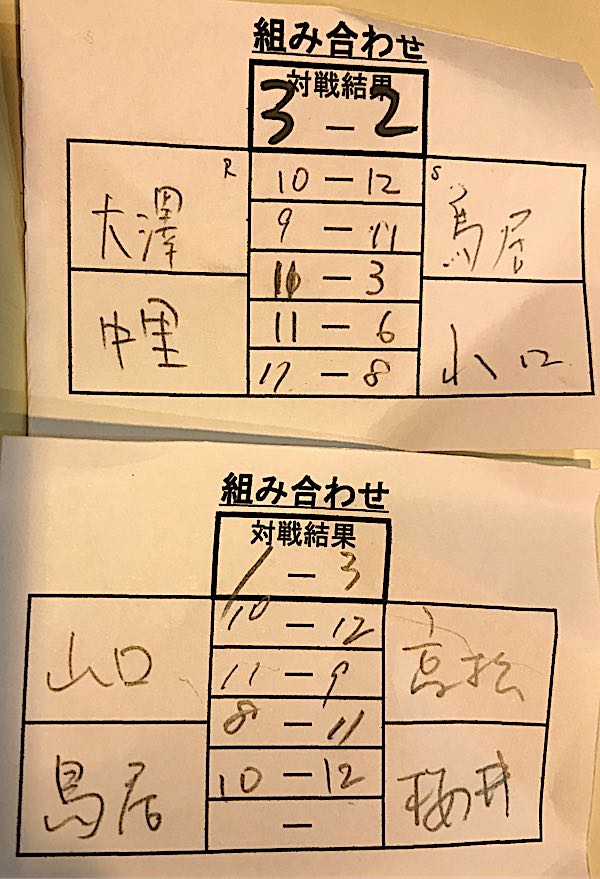 組み合わせ
対戦結果
3 － 2
R 10 － 12 S
大澤 9 － 11 鳥居
11 － 3
中里 11 － 6
11 － 8
組み合わせ
対戦結果
1 － 3
10 － 12
山口 11 － 9 高松
8 － 11
鳥居 10 － 12 桜井
－